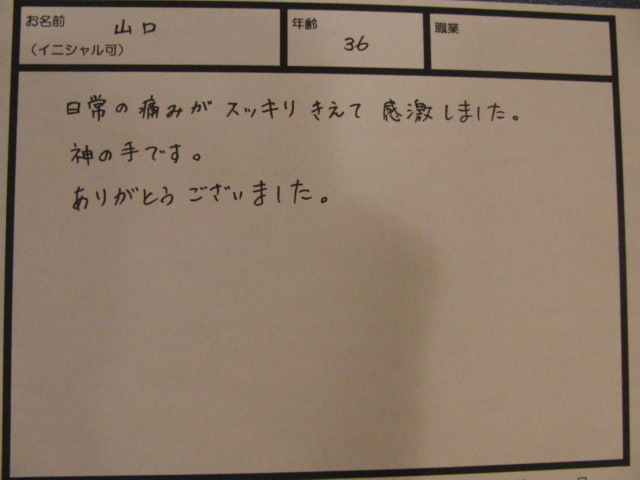 お名前 山口
(イニシャル可)
年齢
36
職業
日常の痛みが スッキリ きえて 感激しました。
神の手です。
ありがとう ございました。